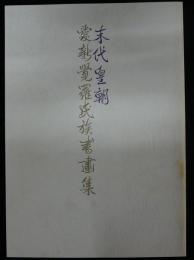 末代皇朝
愛新覺羅氏族書畫集